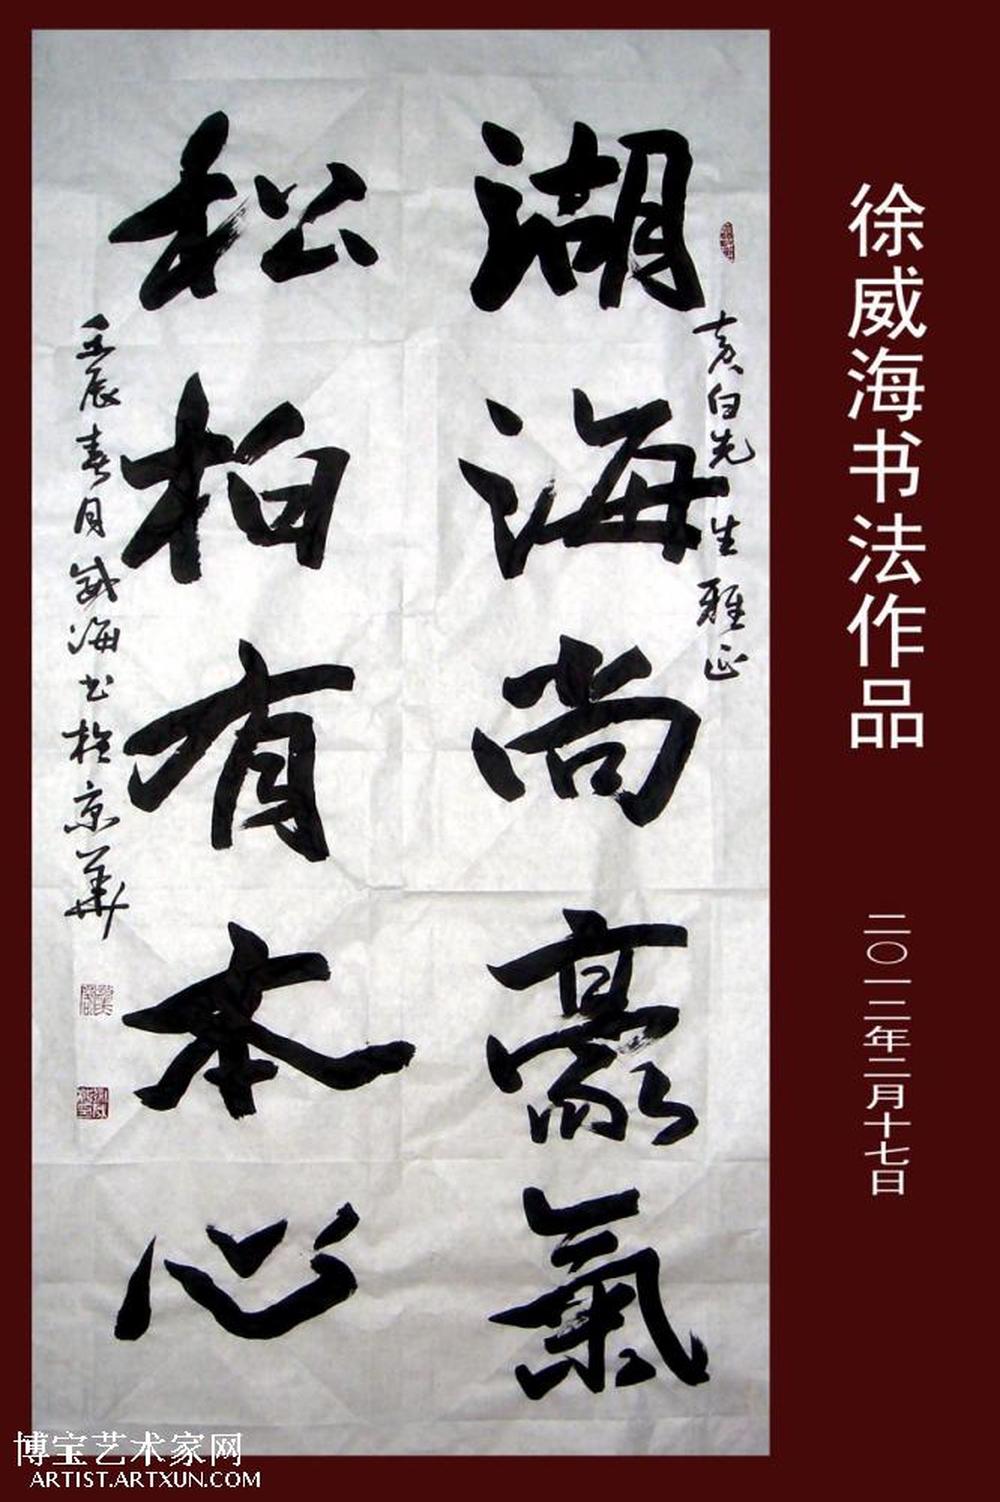 徐威海书法作品
二〇一二年二月十七日
黄白先生雅正
湖海尚豪氣
松柏有本心
壬辰春月威海书於京華
博宝艺术家网
ARTIST.ARTXUN.COM